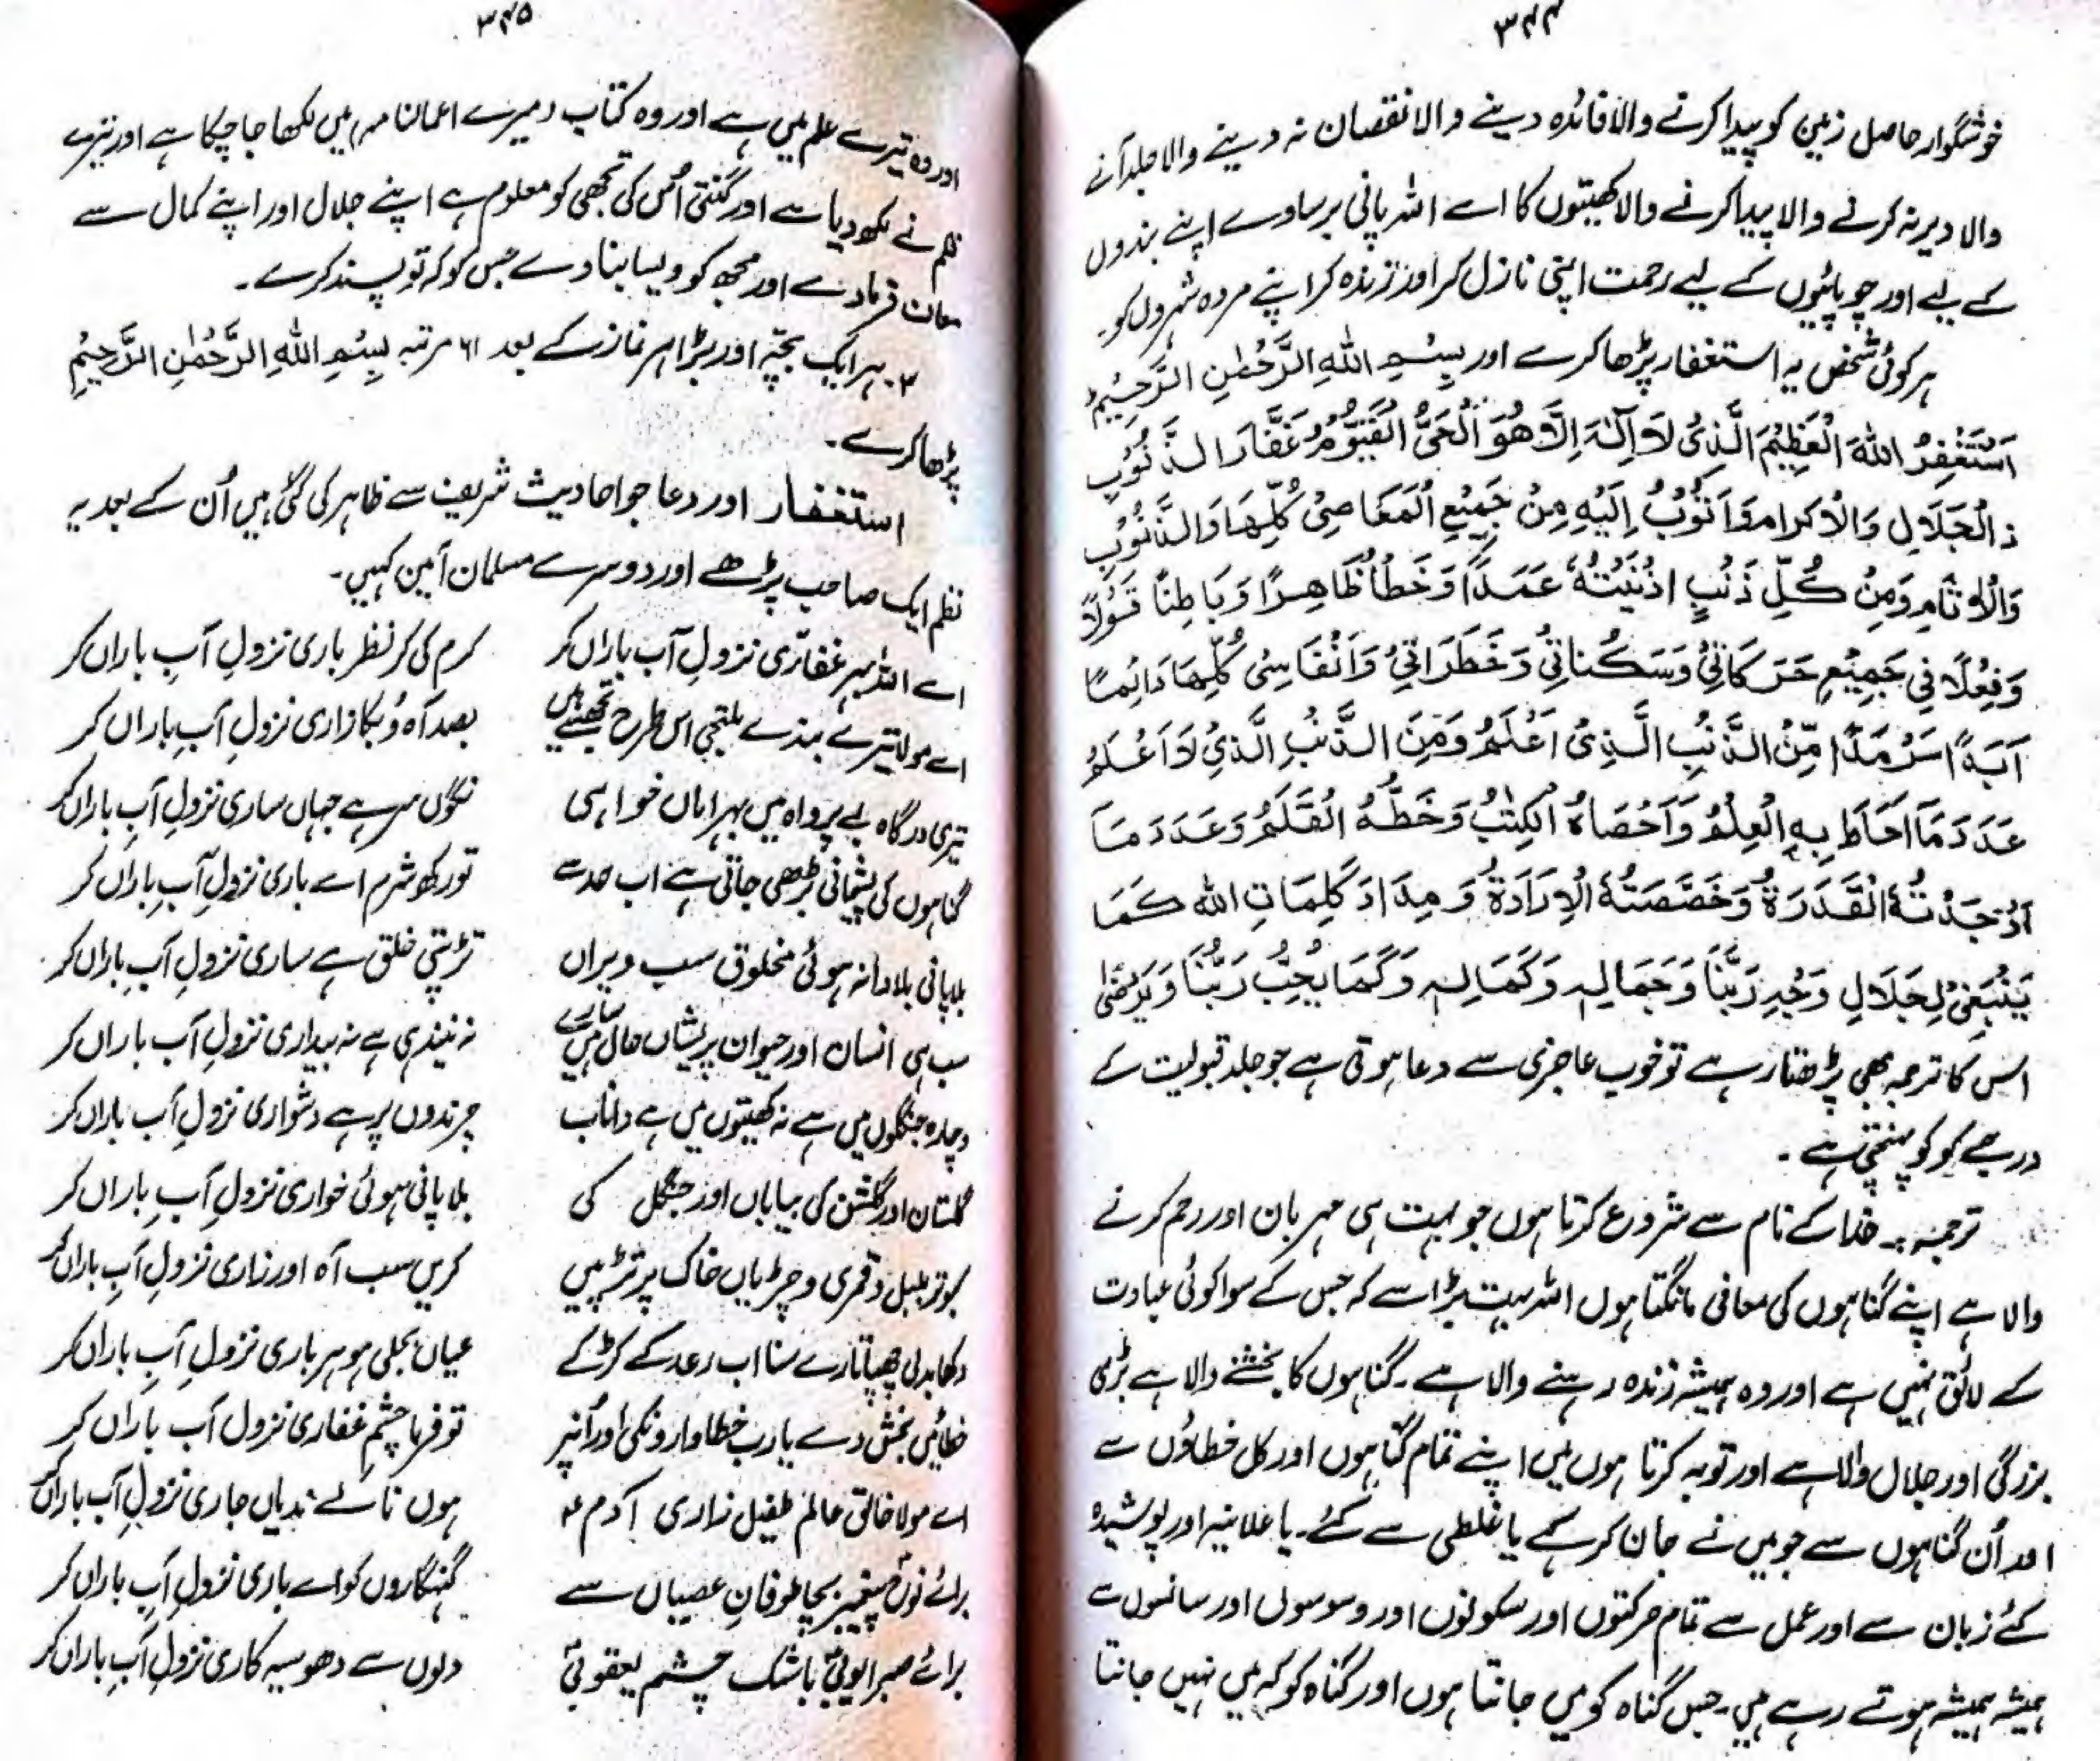 ۳۴۴
خوشگوار حاصل زمین کو پیدا کرنے والا فائدہ دینے والا نقصان نہ دینے والا جلد آنے
والا دیر نہ کرنے والا پیدا کرنے والا کھیتوں کا اے اللہ پانی برسا دے اپنے بندوں
کے لیے اور چوپائیوں کے لیے رحمت اپنی نازل کر اور زندہ کر اپنے مردہ شہروں کو۔
ہر کوئی شخص یہ استغفار پڑھا کرے اور بِسْمِ اللهِ الرَّحْمٰنِ الرَّحِيْمِ
اَسْتَغْفِرُ اللهَ الْعَظِيْمَ الَّذِىْ لَا اِلٰهَ اِلَّا هُوَ الْحَىُّ الْقَيُّوْمُ غَفَّارَ الذُّنُوْبِ
ذالْجَلَالِ وَالْاِكْرَامِ وَاَتُوْبُ اِلَيْهِ مِنْ جَمِيْعِ الْمَعَاصِىْ كُلِّهَا وَالذُّنُوْبِ
وَالْاٰثَامِ وَمِنْ كُلِّ ذَنْبٍ اَذْنَبْتُهٗ عَمَدًا وَخَطَأً ظَاهِرًا وَبَاطِنًا قَوْلًا
وَفِعْلًا فِىْ جَمِيْعِ حَرَكَاتِىْ وَسَكَنَاتِىْ وَخَطَرَاتِىْ وَاَنْفَاسِىْ كُلِّهَا دَائِمًا
اَبَدًا سَرْمَدًا مِّنَ الذَّنْبِ الَّذِىْ اَعْلَمُ وَمِنَ الذَّنْبِ الَّذِىْ لَا اَعْلَمُ
عَدَدَ مَا اَحَاطَ بِهِ الْعِلْمُ وَاَحْصَاهُ الْكِتٰبُ وَخَطَّهُ الْقَلَمُ وَعَدَدَ مَا
اَوْجَدَتْهُ الْقَدْرَةُ وَخَصَّصَتْهُ الْاِرَادَةُ وَمِدَادَ كَلِمَاتِ الله كَمَا
يَنْبَغِىْ لِجَلَالِ وَجْهِ رَبِّنَا وَجَمَالِهٖ وَكَمَالِهٖ وَكَمَا يُحِبُّ رَبُّنَا وَيَرْضٰى
اس کا ترجمہ بھی پڑھتا رہے تو خوب عاجزی سے دعا ہوتی ہے جو جلد قبولیت کے
درجے کو کو پہنتی ہے۔
ترجمہ:۔ خدا کے نام سے شروع کرتا ہوں جو بہت ہی مہربان اور رحم کرنے
والا ہے اپنے گناہوں کی معافی مانگتا ہوں اللہ بہت بڑا سے کہ جس کے سوا کوئی عبادت
کے لائق نہیں ہے اور وہ ہمیشہ زندہ رہنے والا ہے۔ گناہوں کا بخشنے والا ہے بڑی
بزرگی اور جلال والا ہے اور توبہ کرتا ہوں میں اپنے تمام گناہوں اور کل خطاؤں سے
اور اُن گناہوں سے جو میں نے جان کر کے یا غلطی سے کئے۔ یا علانیہ اور پوشیدہ
کئے زبان سے اور عمل سے تمام حرکتوں اور سکونوں اور وسوسوں اور سانسوں سے
ہمیشہ ہمیشہ ہوتے رہے ہیں۔ جس گناہ کو میں جانتا ہوں اور گناہ کو کہ میں نہیں جانتا
۳۴۵
اور وہ تیرے علم میں ہے اور وہ کتاب (میرے اعمال نامہ) میں لکھا جا چکا ہے اور تیرے
قلم نے لکھ دیا ہے اور گنتی اُس کی تجھی کو معلوم ہے اپنے جلال اور اپنے کمال سے
معاف فرما دے اور مجھ کو ویسا بنا دے جس کو کہ تو پسند کرے۔
۲۔ ہر ایک بچّہ اور بڑا ہر نماز کے بعد ۶۱ مرتبہ بِسْمِ اللهِ الرَّحْمٰنِ الرَّحِيْمِ
پڑھا کرے۔
استغفار اور دعا جو احادیث شریف سے ظاہر کی گئی ہیں اُن کے بعد یہ
نظم ایک صاحب پڑھے اور دوسرے مسلمان آمین کہیں۔
اے اللہ بہر غفاری نزولِ آب باراں کر کرم کی کر نظر باری نزولِ آبِ باراں کر
اے مولا تیرے بندے ملتجی اس طرح تجھسے ہیں بصد آہ وُ بکا زاری نزولِ آبِ باراں کر
تیری درگاہ بے پرواہ میں بہر اماں خواہی نگوں سر ہے جہاں ساری نزولِ آبِ باراں کر
گناہوں کی پشیمانی بڑھی جاتی ہے اب حد سے تو رکھ شرم اے باری نزولِ آبِ باراں کر
بلا پانی بلا دانہ ہوئی مخلوق سب ویراں تڑپتی خلق ہے ساری نزولِ آبِ باراں کر
سب ہی انسان اور حیوان پریشاں حال ہیں سارے نہ نیند ہی ہے نہ بیداری نزولِ آب باراں کر
چارہ جنگلوں میں ہے نہ کھیتوں میں ہے داناب چرندوں پر ہے دشواری نزولِ آب باراں کر
گلستان اور گلشن کی بیاباں اور جنگل کی بلا پانی ہوئی خواری نزولِ آبِ باراں کر
کبوتر بلبل و قمری و چڑیاں خاک پر تڑپیں کریں سب آہ اور زاری نزولِ آبِ باراں کر
دکھا بدلی چھپا تارے سنا اب رعد کے کڑکے عیاں بجلی ہو ہر باری نزولِ آبِ باراں کر
خطائیں بخش دے یارب خطاوارونکی اور آنپر تو فرما چشمِ غفاری نزول آب باراں کر
اے مولا خالق عالم طفیل زاری آدم ؑ ہوں نالے ندیاں جاری نزولِ آب باراں کر
برائے نوحؑ پیغمبر بچا طوفانِ عصیاں سے گنہگاروں کو اے باری نزولِ آبِ باراں کر
برائے صبر ایوبیؑ باشک چشم یعقوبیؑ دلوں سے دھو سیہ کاری نزولِ آبِ باراں کر